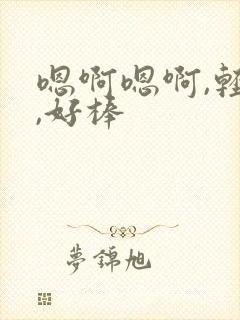 嗯啊嗯啊,輕
,好棒
夢錦旭